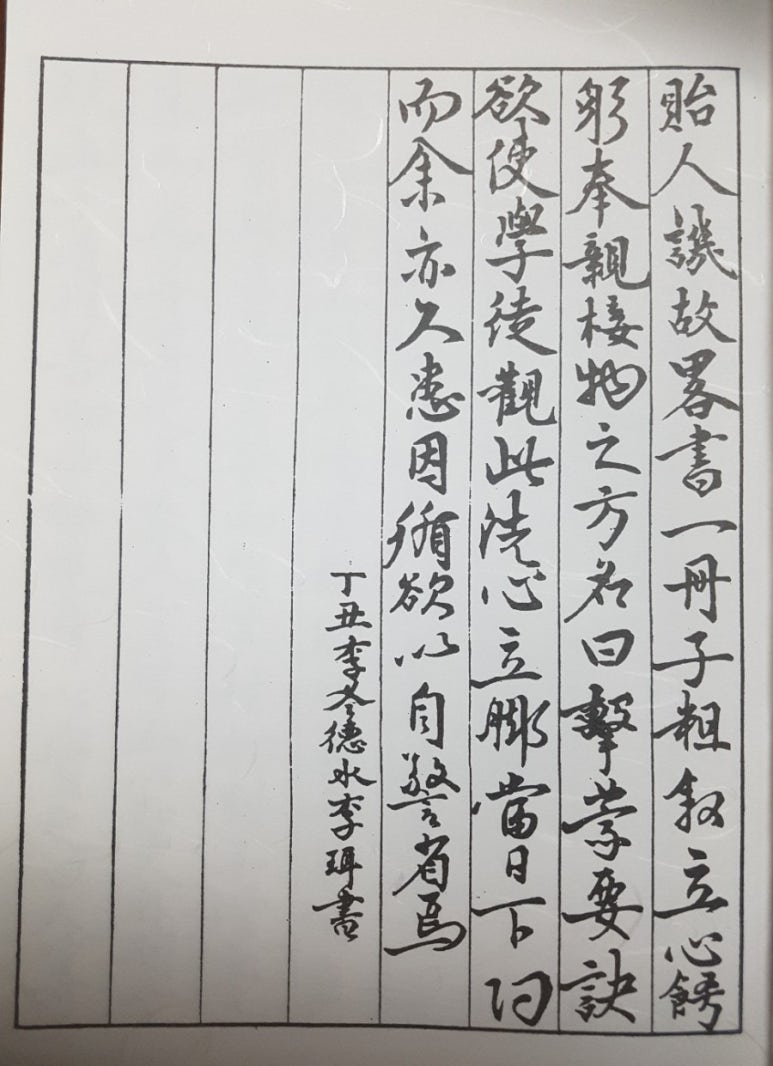 貽人譏故畧書一冊子粗叙立心飭
躬奉親接物之方名曰擊蒙要訣
欲使學徒觀此洗心立脚當日下功
而余亦久患因循欲以自警省焉
丁丑季冬德水李珥書